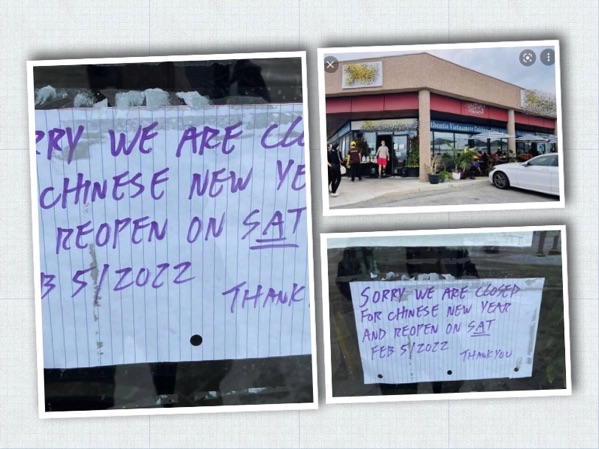 RRY WE ARE CLO
CHINESE NEW YE
REOPEN ON SAT
B 5/2022
THANK
Vietnamese
SORRY WE ARE CLOSED
FOR CHINESE NEW YEAR
AND REOPEN ON SAT
FEB 5/2022
THANK YOU